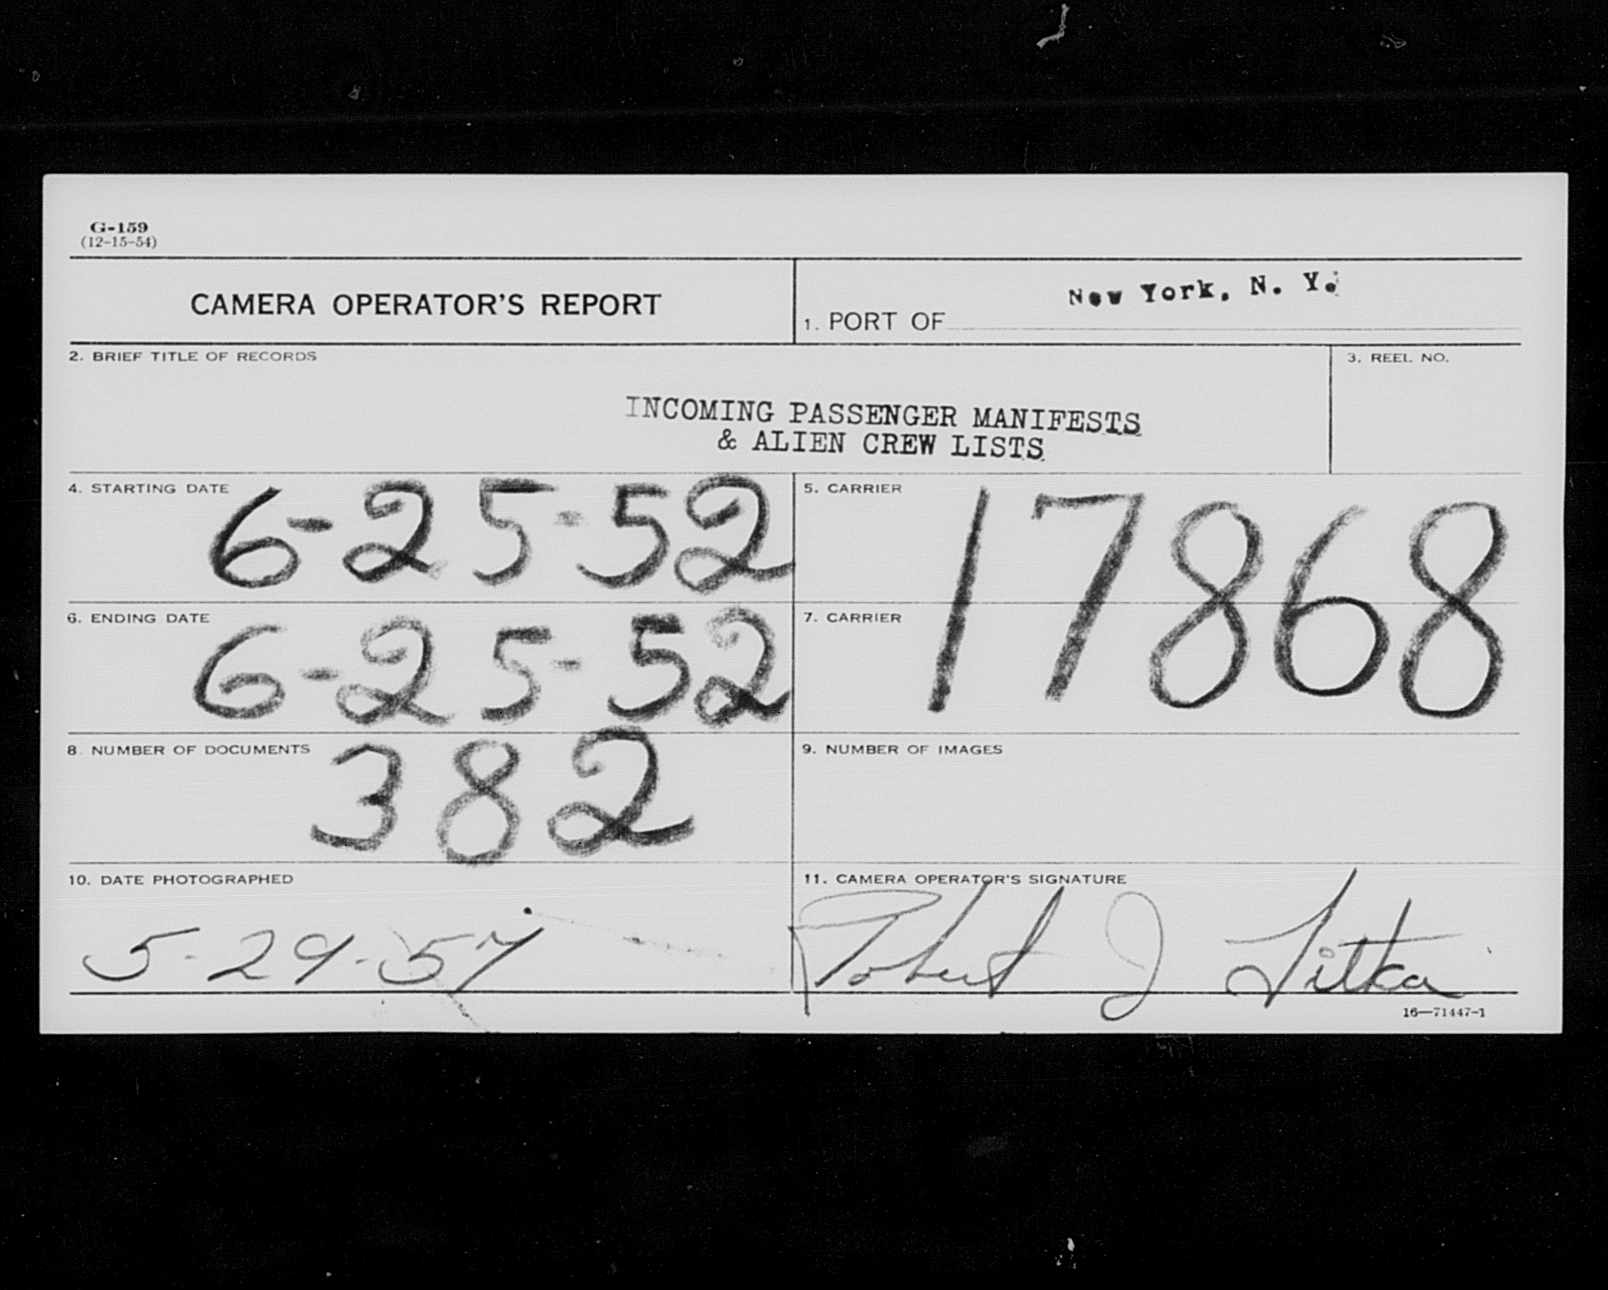 G-159
(12-15-54)
CAMERA OPERATOR'S REPORT
1. PORT OF New York, N. Y.
2. BRIEF TITLE OF RECORDS
3. REEL NO.
INCOMING PASSENGER MANIFESTS
& ALIEN CREW LISTS
4. STARTING DATE 6-25-52
5. CARRIER
17868
6. ENDING DATE 6-25-52
7. CARRIER
8. NUMBER OF DOCUMENTS 382
9. NUMBER OF IMAGES
10. DATE PHOTOGRAPHED
5-29-57
11. CAMERA OPERATOR'S SIGNATURE
Robert J
16—71447-1